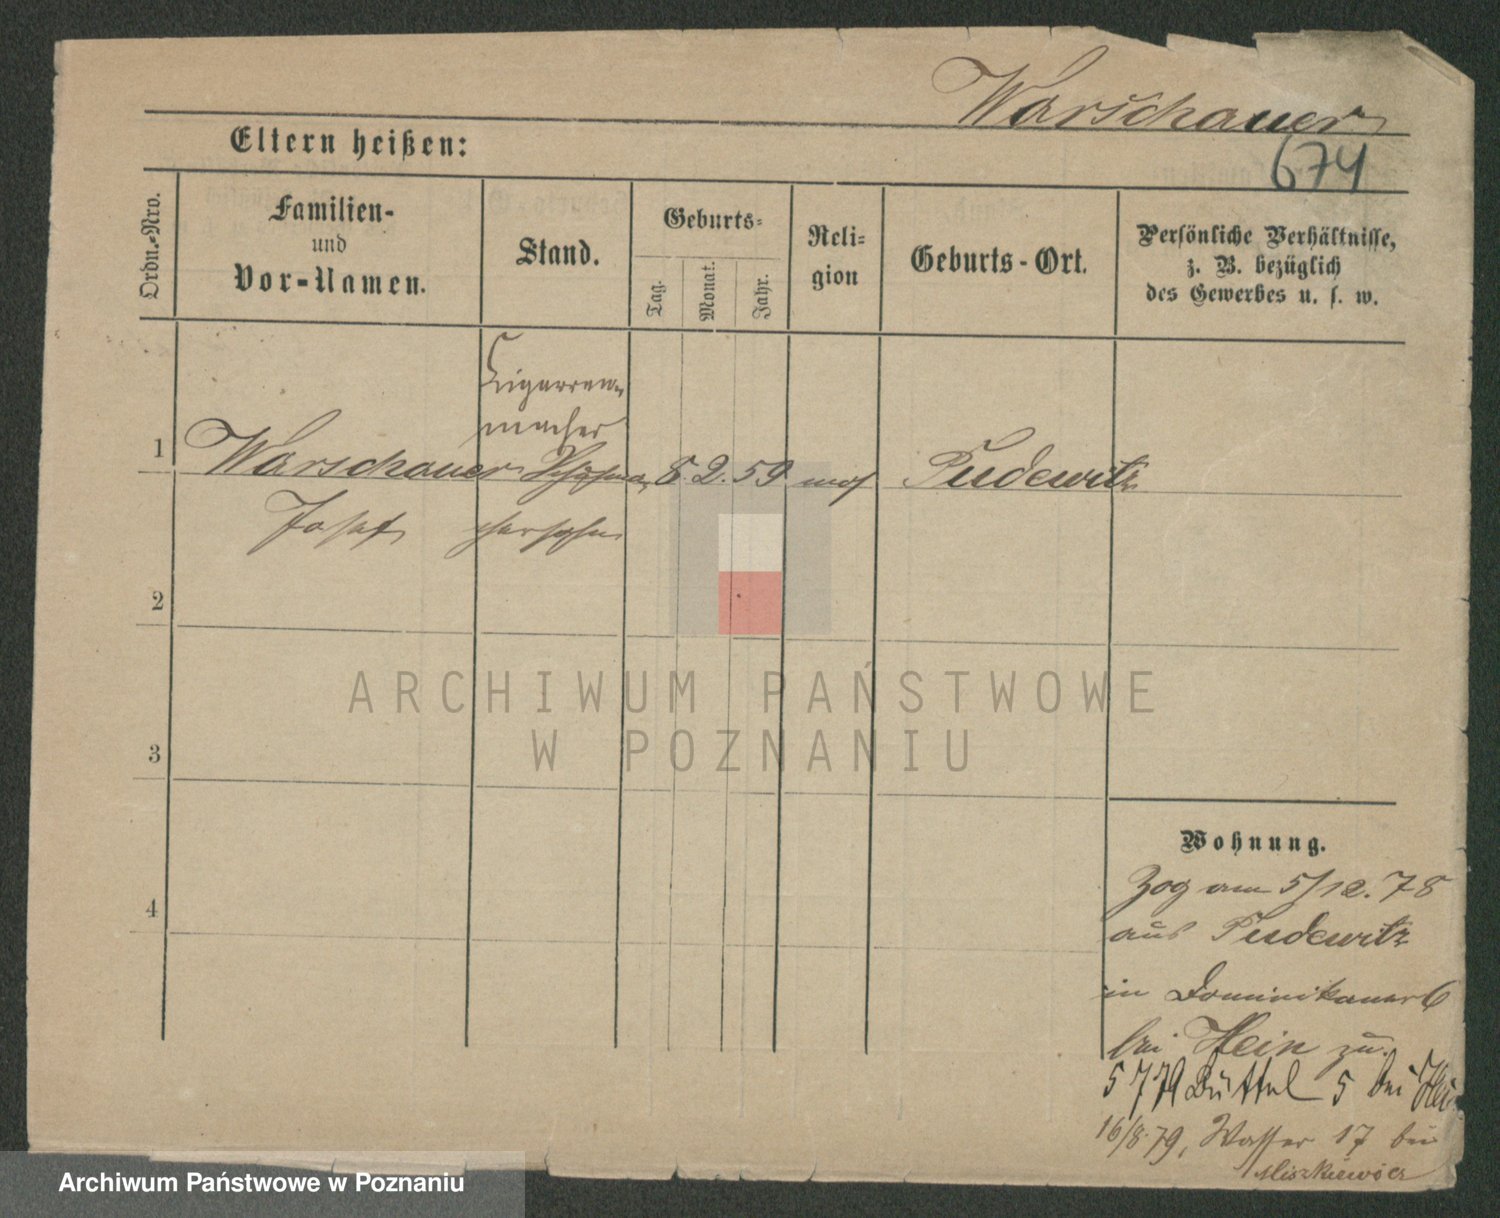 Warschauer
Eltern heißen:
674
Ordn.-Nro.
Familien-
und
Vor-Namen.
Stand.
Geburts-
Tag.
Monat.
Jahr.
Reli-
gion
Geburts-Ort.
Persönliche Verhältnisse,
z. B. bezüglich
des Gewerbes u. s. w.
Cigarren-
macher
1 Warschauer 8. 2. 59 mos Pudewitz
Josef
2
3
4
ARCHIWUM PAŃSTWOWE
W POZNANIU
Wohnung.
Zog am 5/12. 78
aus Pudewitz
in Dominikaner 6
bei Hein zu.
5 7 79 Büttel 5 bei
16/8. 79, Wasser 17 bei
Miszkiewicz
Archiwum Państwowe w Poznaniu